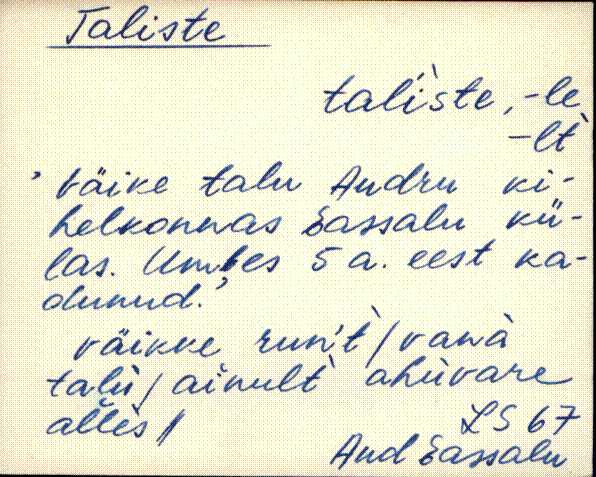 Taliste
tali̕ste, -le
-lt̀
' Väike talu Andru ki-
helkonnas Sassalu kü-
las. Umbes 5 a. eest ka-
dunud.'
väikke / vanà
talù / ainult̀ ahùvare
alles //
LS 67
And Sassalu